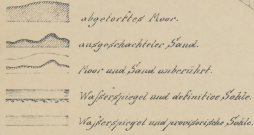 abgetorftes Moor.
ausgeschachteter Sand.
Moor und Sand unberührt.
Wasserspiegel und definitive Sohle.
Wasserspiegel und provisorische Sohle.